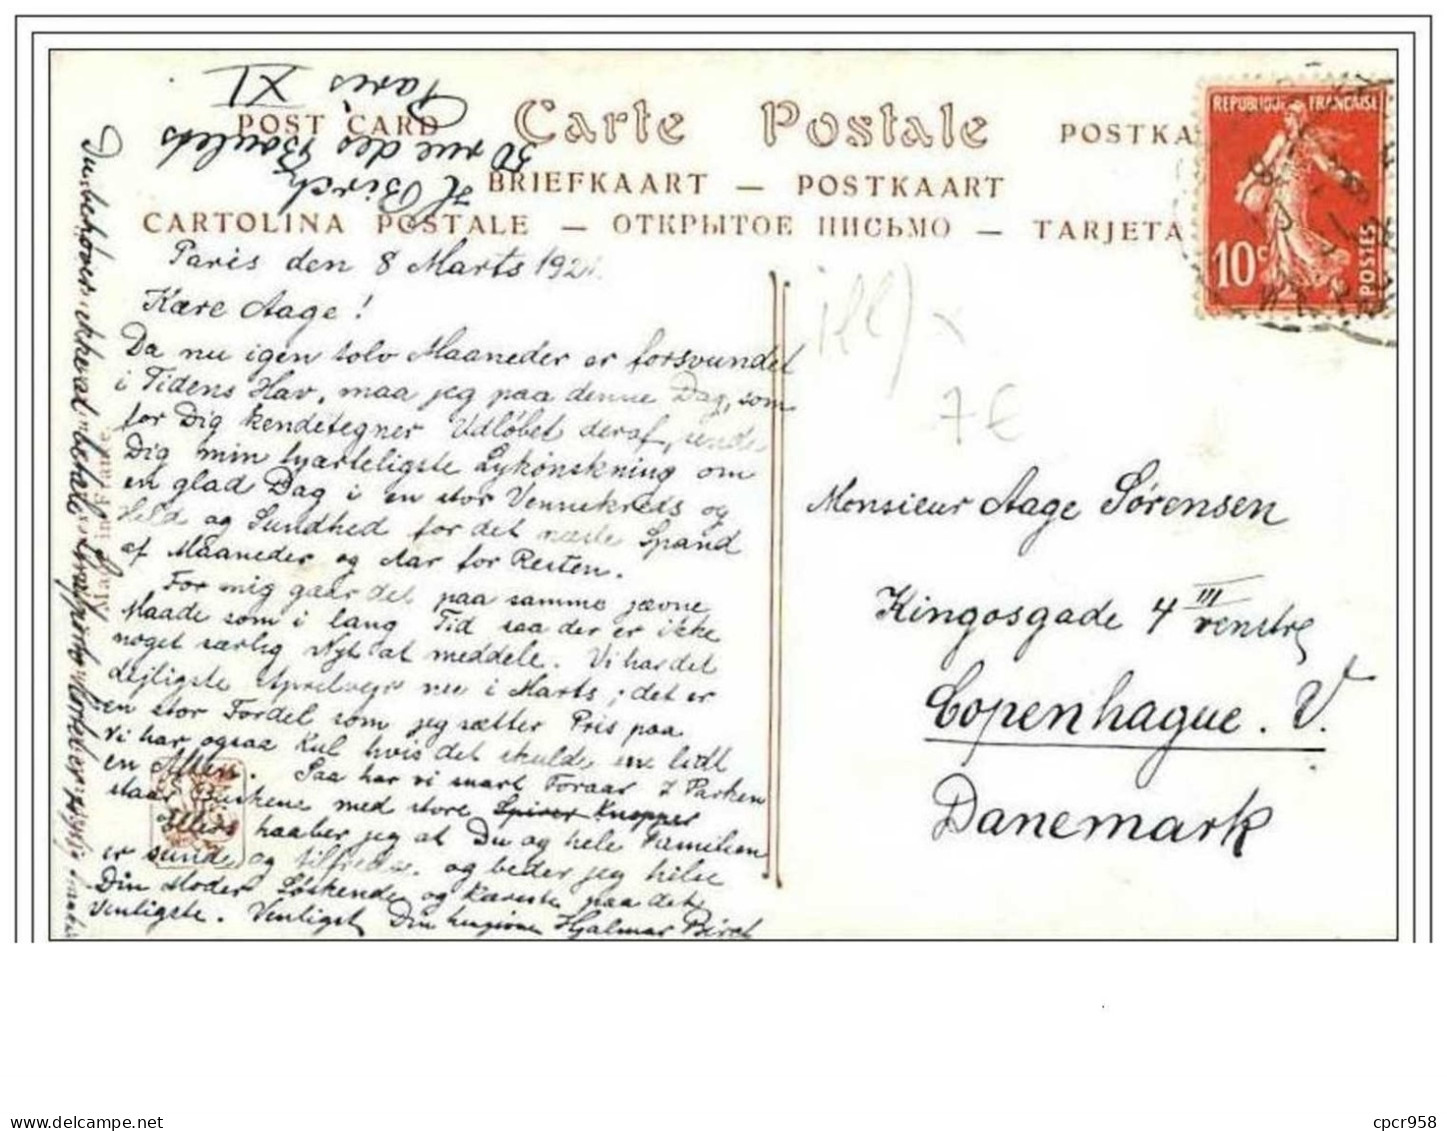 H Birch
50 rue des Boulets
Paris XI
POST CARD Carte Postale POSTKA
BRIEFKAART — POSTKAART
CARTOLINA POSTALE — ОТКРЫТОЕ ПИСЬМО — TARJETA
REPUBLIQUE FRANÇAISE
10c
POSTES
Paris den 8 Marts 192
Kære Aage!
Da nu igen tolv Maaneder er forsvundet
i Tidens Hav, maa jeg paa denne Dag, som
for Dig kendetegner Udløbet deraf, sende
Dig min hjærteligste Lykønskning om
en glad Dag i en stor Vennekreds og
Held og Sundhed for det næste Spand
af Maaneder og Aar for Resten.
For mig gaar det paa samme jævne
Maade som i lang Tid saa der er ikke
noget særlig Nyt at meddele. Vi har det
dejligste Aprelvejr nu i Marts; det er
en stor Fordel som jeg sætter Pris paa
Vi har ogsaa Kul hvis det skulde en lidt
en Aften. Saa har vi snart Foraar I Parken
staar Buskene med store Knopper
Ellers haaber jeg at Du og hele Familien
er sunde og tilfredse. og beder jeg hilse
Din Moder Søskende og Kæreste paa det
Venligste. Venligst Din hengivne Hjalmar Birch
Du behøver ikke at
Made in France.
7€
Monsieur Aage Sørensen
Kingosgade 4 III venstre
Copenhague. V.
Danemark
delcampe.net
cpcr958